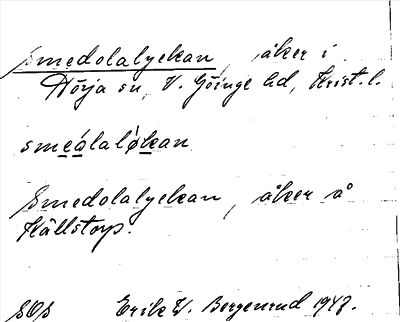 Smedolalyckan, åker i
Hörja sn, V. Göinge hd, Krist. l.
smeálaløkan
Smedolalyckan, åker å
Hällstorp.
SOS Erik W. Bergenrud 1947.